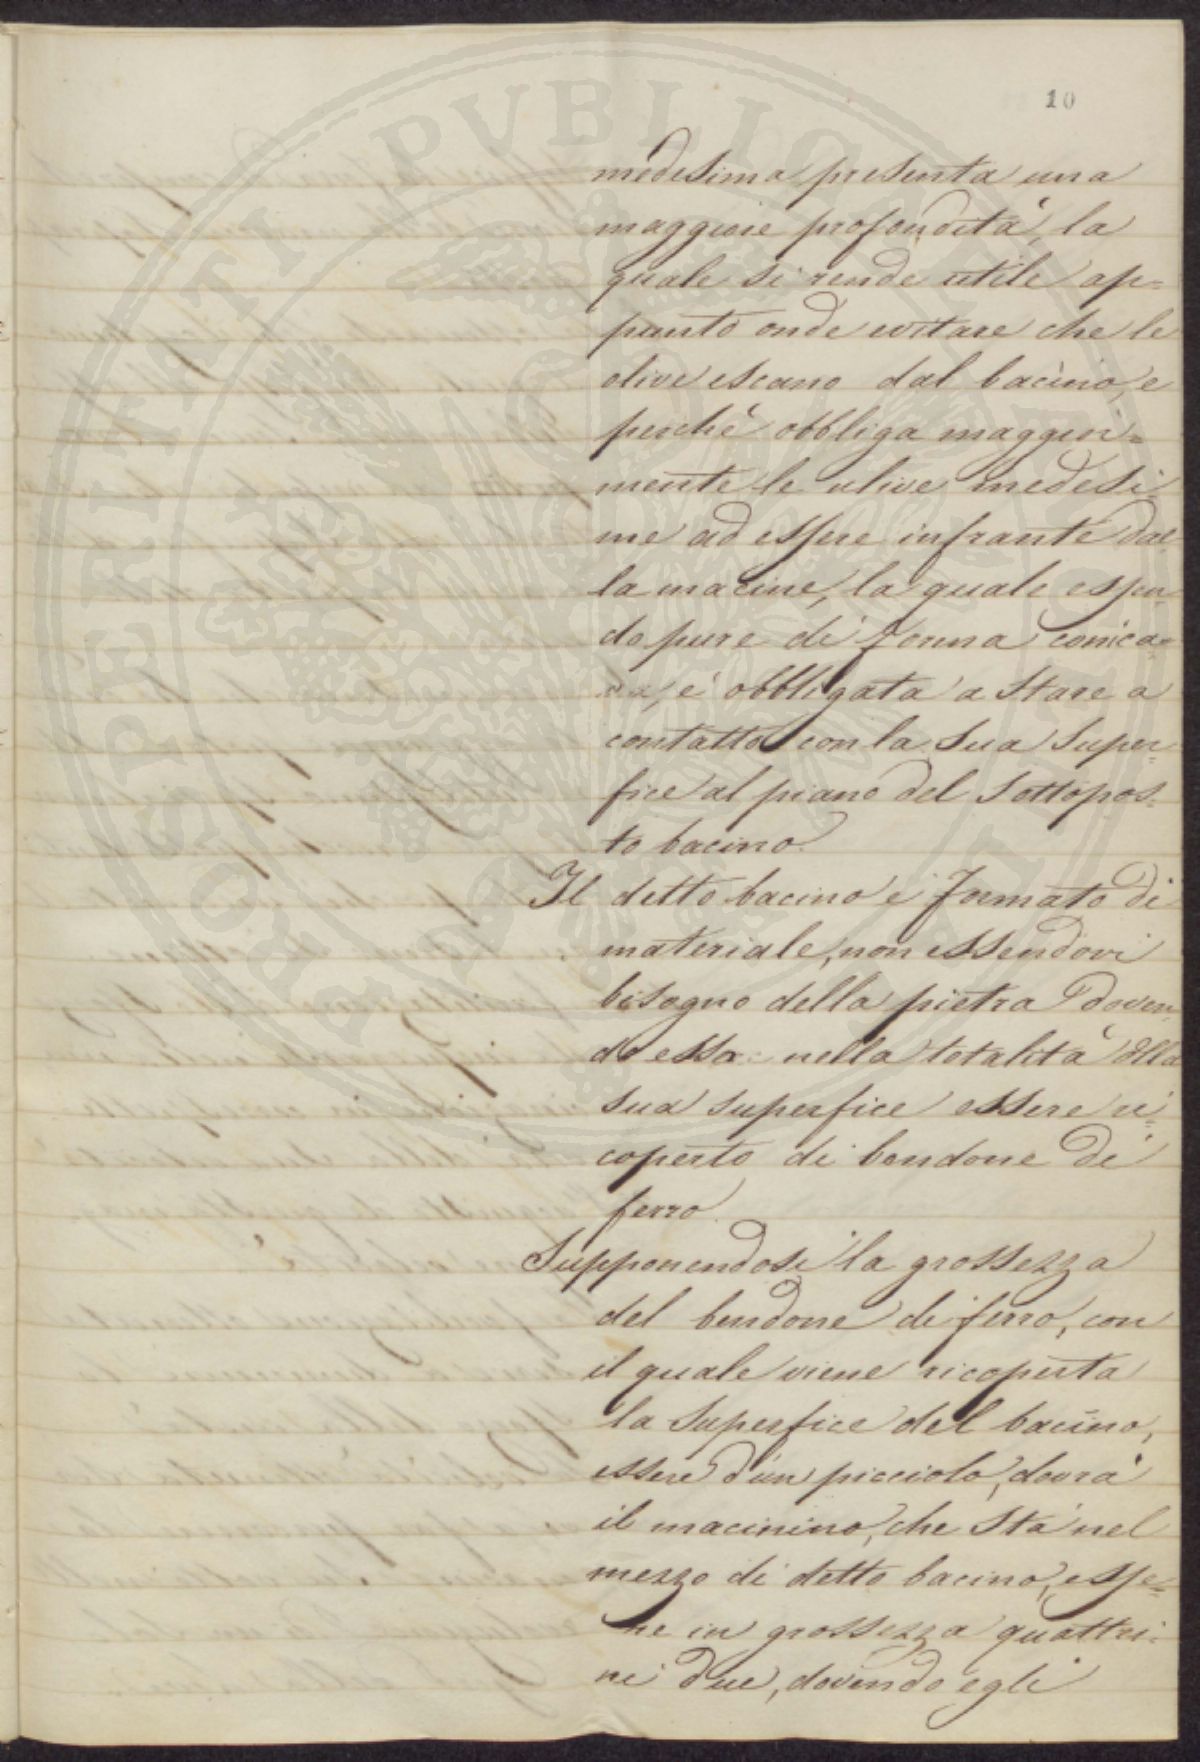 10
medesima presenta una
maggiore profondità, la
quale si rende utile ap=
punto onde evitare che le
olive escano dal bacino, e
perchè obbliga maggior=
mente le ulive medesi=
me ad essere infrante dal
la macine, la quale essen
do pure di forma conica=
, è obbligata a stare a
contatto con la sua super=
fice al piano del sottopos=
to bacino.
Il detto bacino è formato di
materiale, non essendovi
bisogno della pietra doven=
do esso nella totalità della
sua superfice essere ri=
coperto di bandone di
ferro.
Supponendosi la grossezza
del bandone di ferro, con
il quale viene ricoperta
la superfice del bacino,
essere d'un picciolo, dovrà
il macinino, che stà nel
mezzo di detto bacino, esse=
re in grossezza quattri=
ni due, dovendo egli
PROSPERITATI PVBLICAE